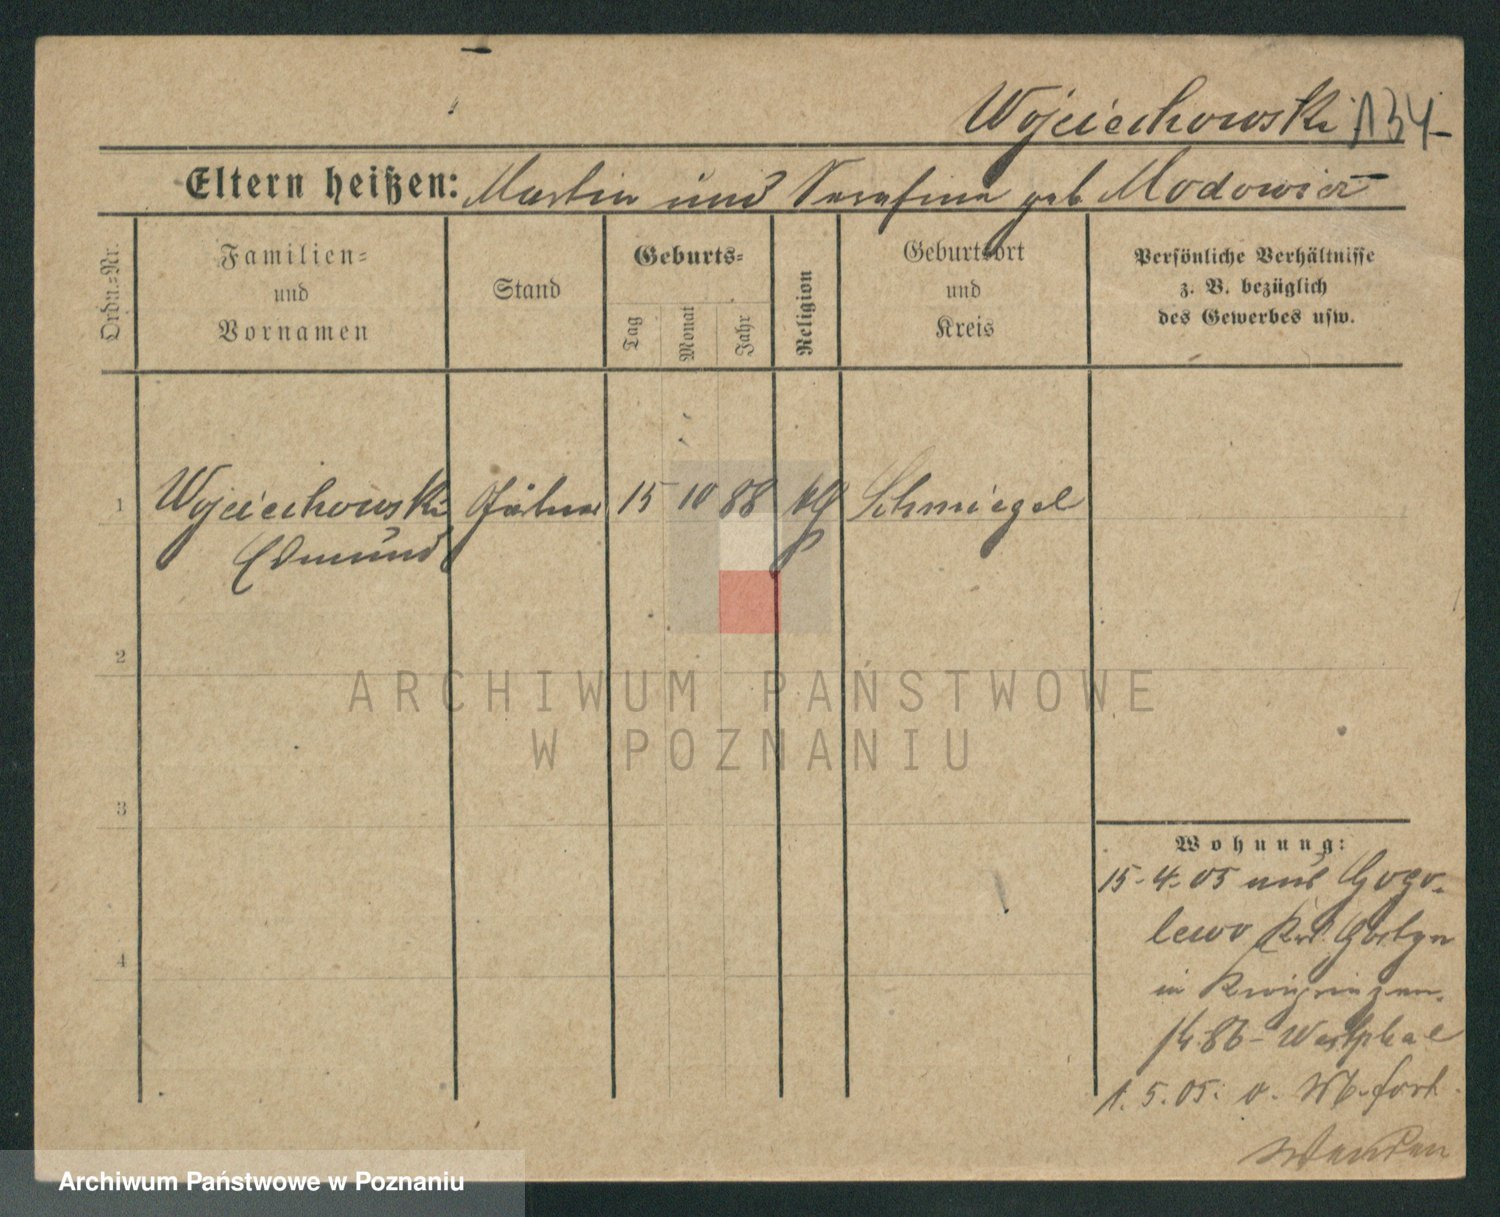 Wojciechowski 134
Eltern heißen: Martin und Serafina geb Modowicz
Ordn.-Nr.
Familien-
und
Vornamen
Stand
Geburts-
Tag
Monat
Jahr
Religion
Geburtsort
und
Kreis
Persönliche Verhältnisse
z. B. bezüglich
des Gewerbes usw.
1 Wojciechowski 15 10 88 kath Schmiegel
Edmund
2
3
4
Wohnung:
15-4-05 aus Gogo-
lewo Krs. Gostyn
in
Westphal
1. 5. 05. fort
Wenden
ARCHIWUM PAŃSTWOWE
W POZNANIU
Archiwum Państwowe w Poznaniu